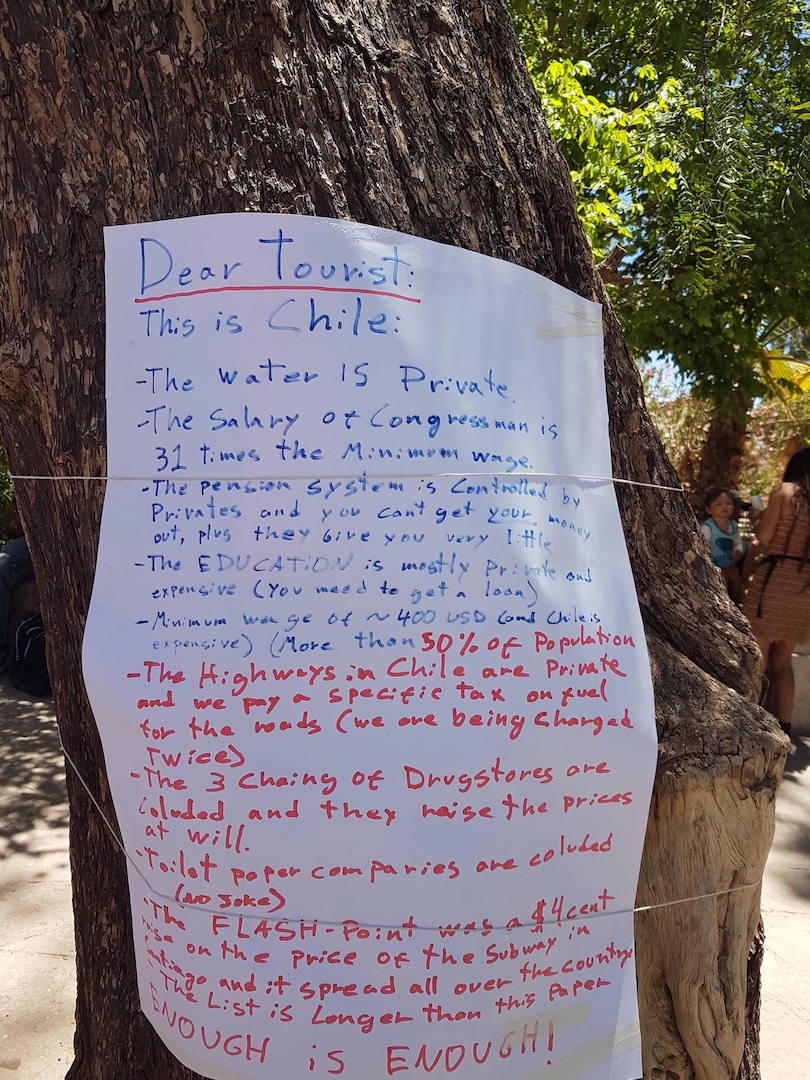 Dear Tourist:
This is Chile:
-The water is Private.
-The Salary of Congressman is
31 times the Minimum wage.
-The pension system is Controlled by
Privates and you can't get your money
out, plus they Give you very little
-The EDUCATION is mostly Private and
expensive (You need to get a loan)
-Minimum wage of ~400 USD (and Chile is
expensive) (More than 50% of Population
-The Highways in Chile are Private
and we pay a specific tax on fuel
for the roads (we are being Charged
Twice)
-The 3 Chains of Drugstores are
Coluded and they raise the prices
at will.
-Toilet paper companies are coluded
(NO JOKE)
-The FLASH-Point was a $4cent
raise on the price of the Subway in
Santiago and it spread all over the country
-The List is Longer than this Paper
ENOUGH is ENOUGH!